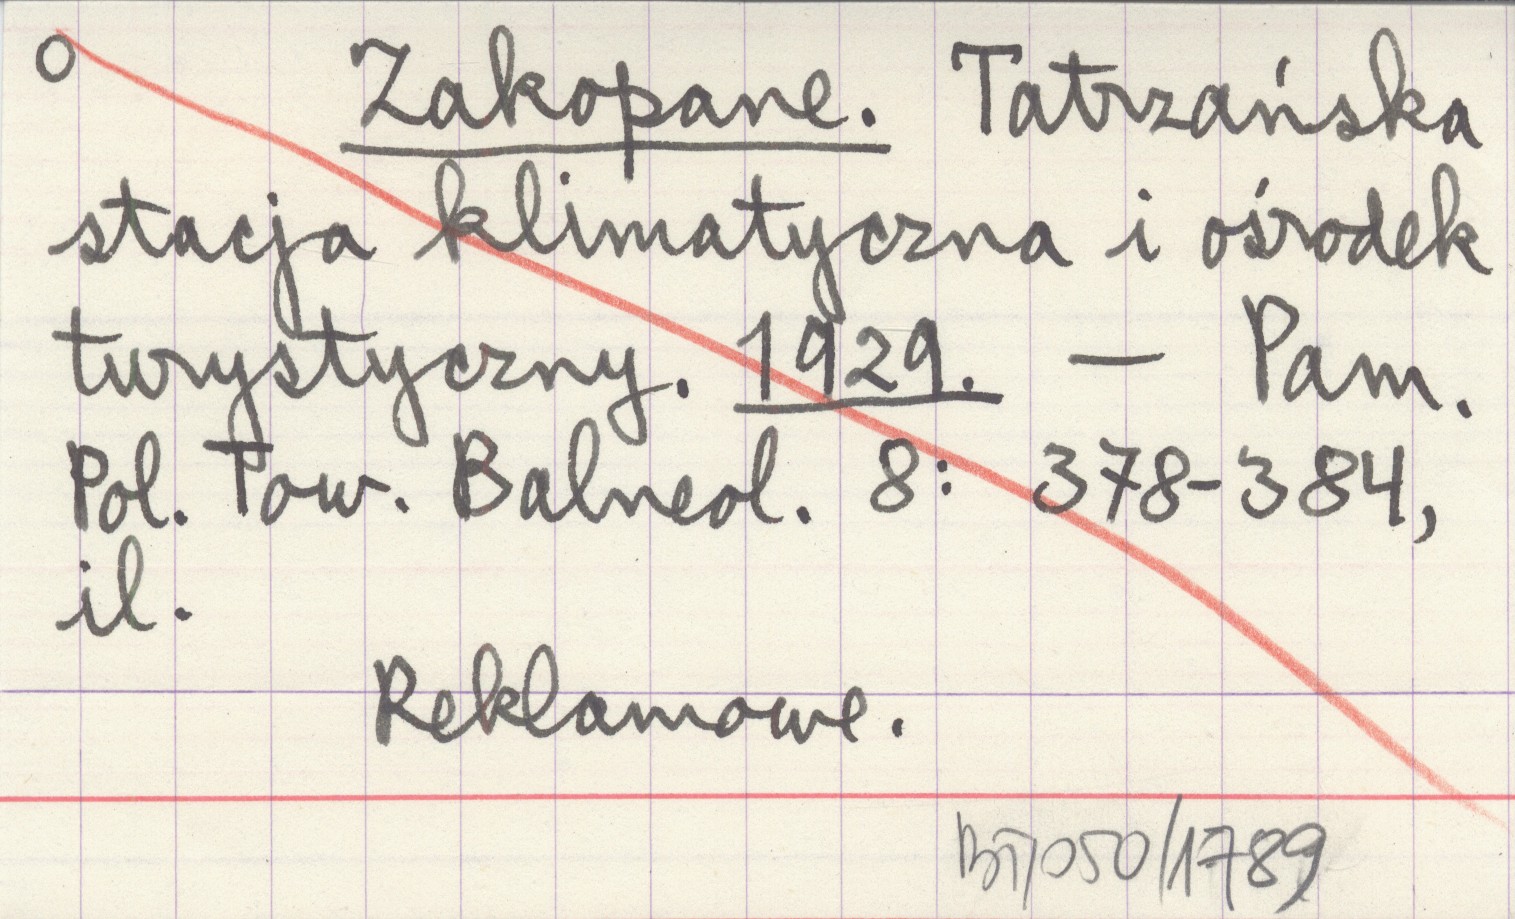 o Zakopane. Tatrzańska
stacja klimatyczna i ośrodek
turystyczny. 1929. — Pam.
Pol. Tow. Balneol. 8: 378-384,
il.
Reklamowe.
BT/050/1789